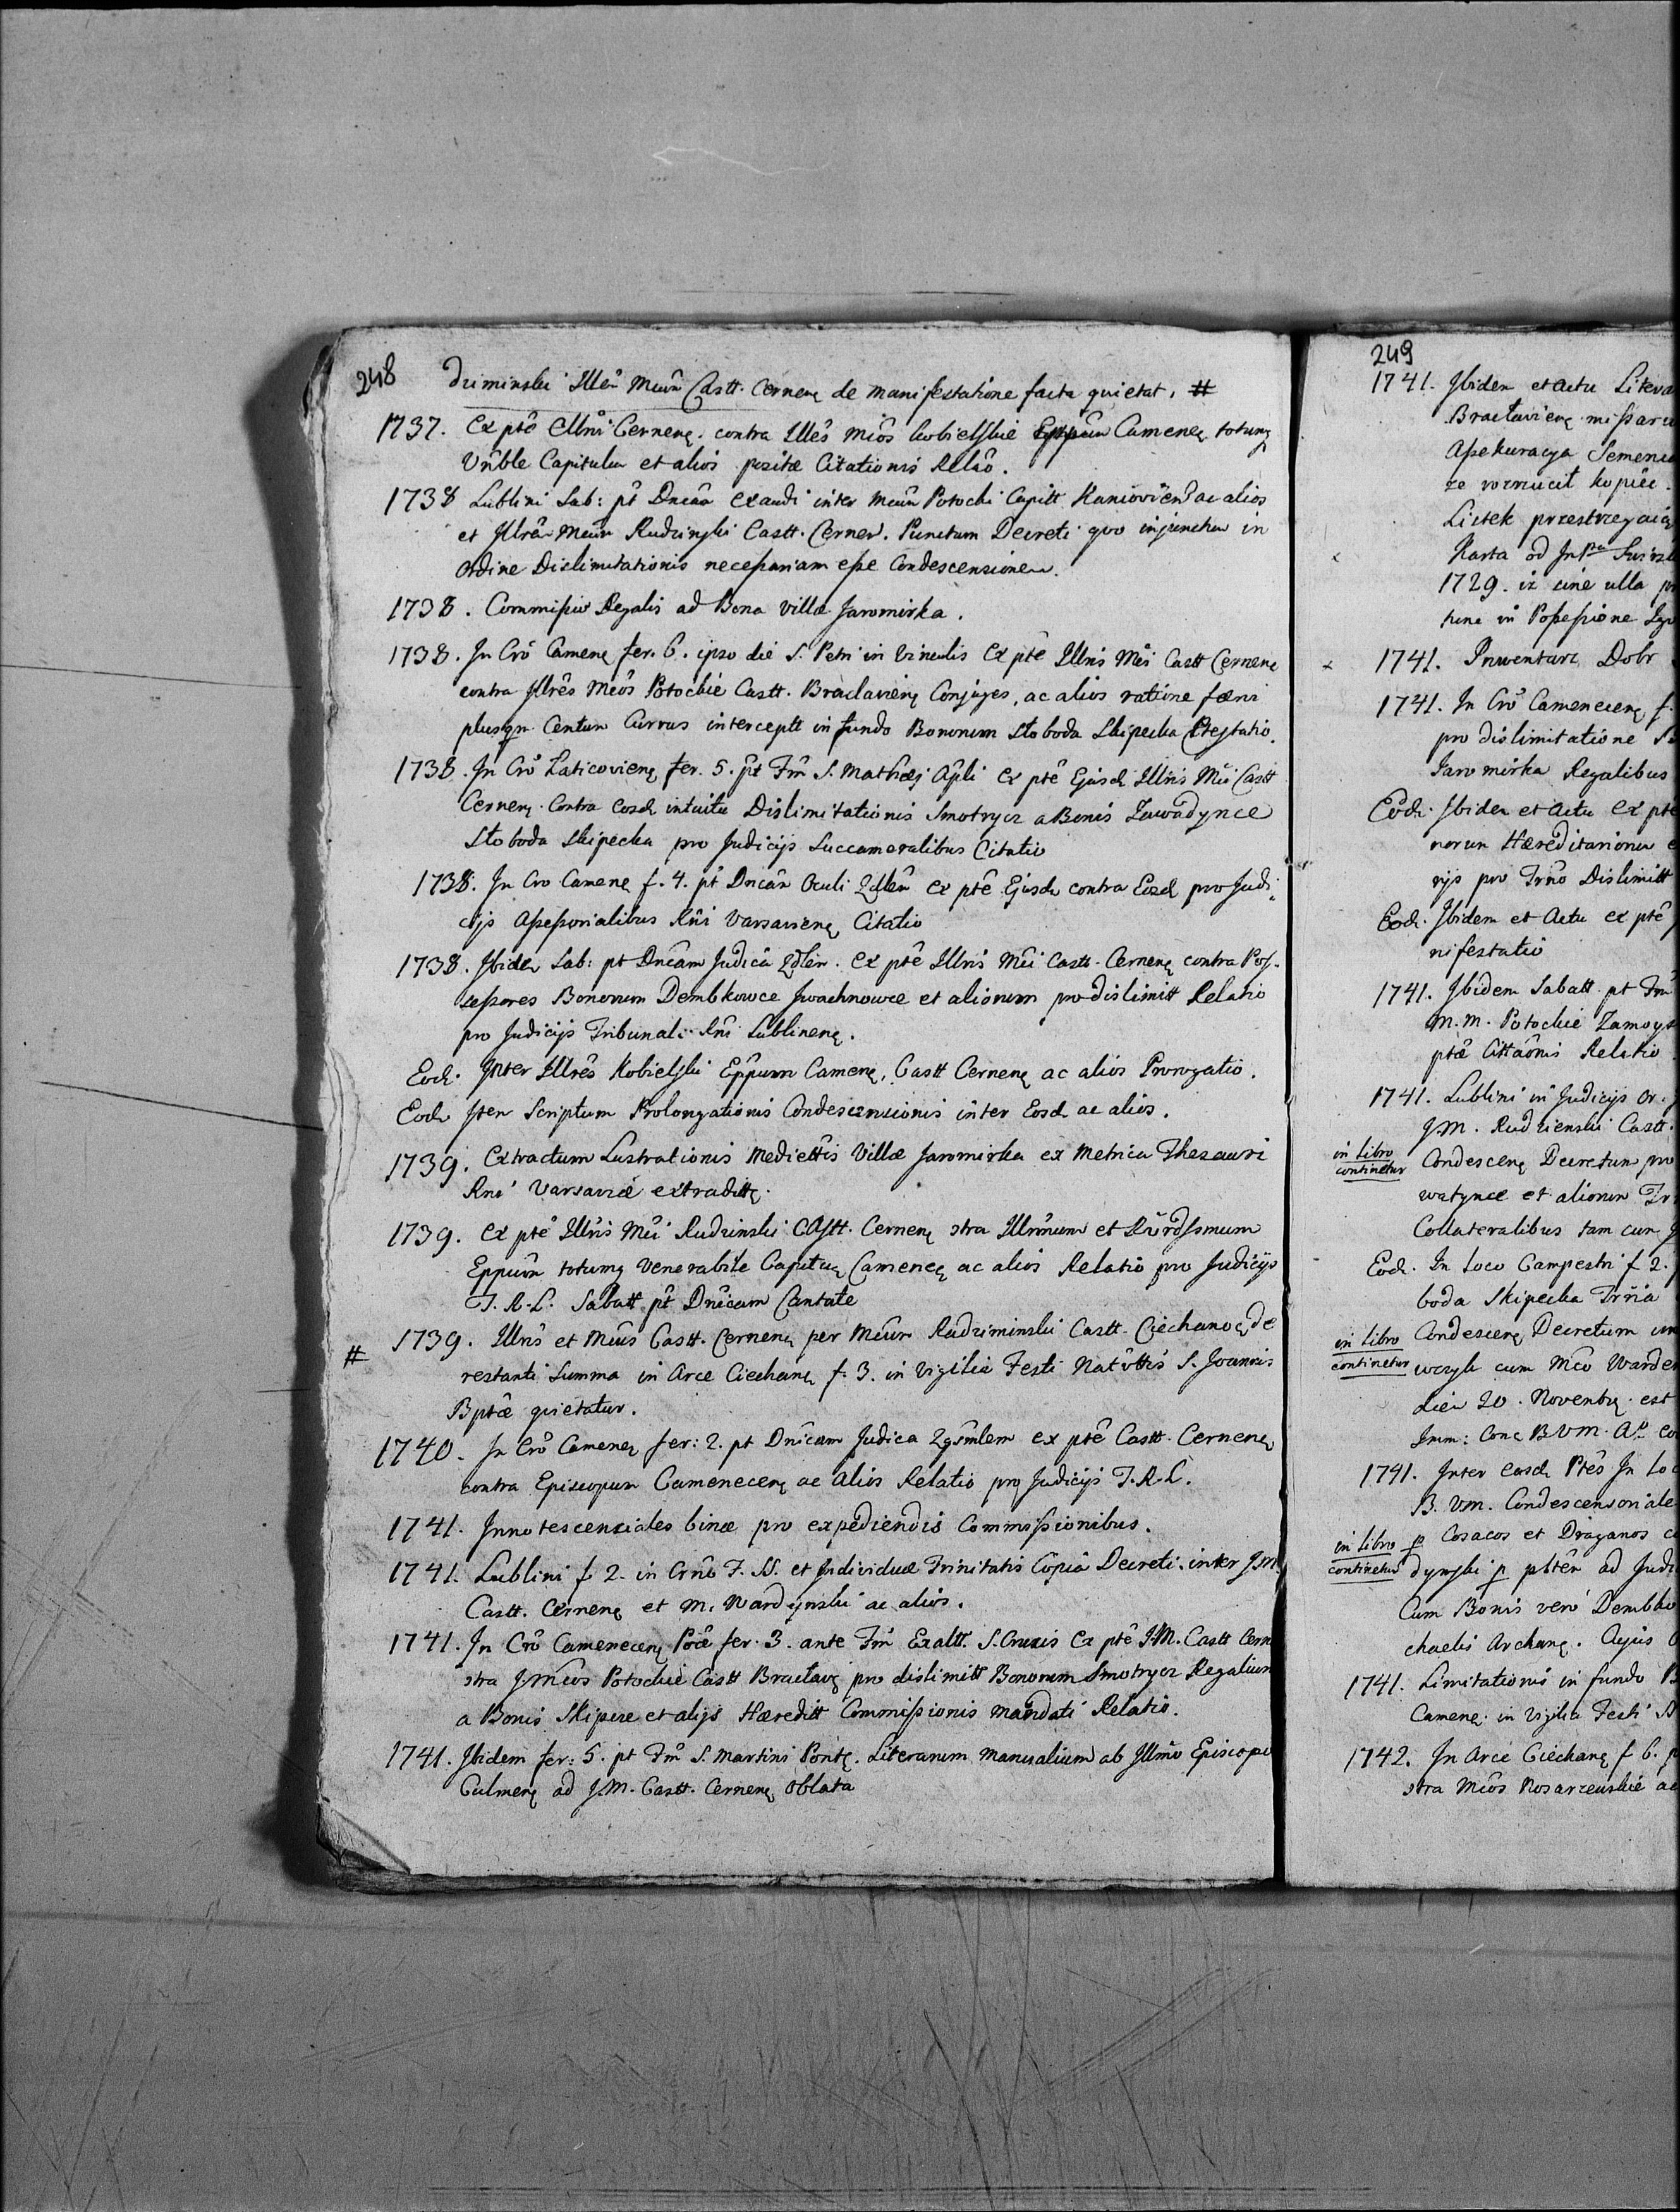 248
driminski Illên Meûn Castt. Cernenę de manifestatione facta quietat. #
1737. Ex ptê Mni Cernenę. contra Illês Miôs Kobielskie Eppûm Camenec totumq
Vnble Capitulu et alios pozitæ Citationis Rllâo.
1738 Lublini Sab: pt Dncâm Exaudi inter Meûm Potocki Capitt Kanioviên ac alios
et Illrêm Meûm Rudzinski Castt. Cernen. Punctum Decreti quo injunctum in
Ordine Dislimitationis necessariam esse Condescensionem.
1738. Commissio Regalis ad Bona villæ Jaromirka.
1738. In Crô Camenę fer. 6. ipso die S. Petri in Vinculis Ex ptê Illris Mêi Castt Cernenę
contra Illrês Meôs Potockie Castt. Braclavienę Conjuges, ac alios ratione fæni
plusqm Centum Currus interceptt in fundo Bonorum Słoboda Skipecka Attestatio.
1738. In Crô Laticovienę fer. 5. pt Fm S. Mathæj Apli ex ptê Ejusd Illris Mei Castt
Cernenę. Contra Eosd intuitu Dislimitationis Smotrycz a Bonis Zawadynce
Słoboda Skipecka pro Judicijs Succameralibus Citatio
1738. In Cro Camenę f. 4. pt Dncâm Oculi Qdlêm ex ptê Ejusd contra Eosd pro Judi
cijs Assessorialibus Rni Varsavienę Citatio
1738. Ibidem Sab: pt Dncâm Judica Qdlem. Ex ptê Illris Mêi Castt. Cernenę contra Pos-
sessores Bonorum Dembkowce Iwachnowce et aliorum pro dislimitt Relatio
pro Judicijs Tribunal. Rni Lublinenę.
Eod. Inter Illrês Kobielski Eppum Camenę, Castt Cernenę ac alios Prorogatio.
Eod Item Scriptum Prolongationis Condescensionis inter Eosd ac alios.
1739. Extractum Lustrationis Medietttis Villæ Jaromirka ex Metrica Thesauri
Rni Varsaviæ extraditt.
1739. Ex ptê Illris Mei Rudzinski Castt. Cernenę stra Illrmum et Rûrdssmum
Eppum totumq Venerabile Capitu Camenec ac alios Relatio pro Judicijs
T. R. L. Sabatt pt Dnicam Cantate
# 1739. Illris et Meûs Castt. Cernenę per Meûm Radziminski Castt. Ciechanoę de
restanti Summa in Arce Ciechanę f. 3. in Vigilia Festi Natvttis S. Joannis
Bptæ quietatur.
1740. In Crô Camenec fer: 2. pt Dnicam Judica Qgsmlem ex ptê Castt. Cernenę
contra Episcopum Camenecenę ac alios Relatio pro Judicijs T. R. L.
1741. Innotescenciales binæ pro expediendis Commissionibus.
1741. Lublini f. 2. in Crno F. SS. et Individuæ Trinitatis Copia Decreti inter J.M.
Castt. Cernenę et M. Wardynski ac alios.
1741. In Crô Camenecenę Poæ fer. 3. ante Fm Exaltt. S. Crucis Ex ptê J.M. Castt Cern
stra J Mcos Potockie Castt Bracłavę pro dislimitt Bonorum Smotrycz Regalium
a Bonis Skipcze et alijs Hæreditt Commissionis mandati Relatio.
1741. Ibidem fer: 5. pt Fm S. Martini Pontę. Literarum manualium ab Illmo Episcopo
Culmenę ad J.M. Castt. Cernenę Oblata
249
1741. Ibidem et actu Litera
Bracławienę missaru
Assekuracya
ze rozrucił kopiec.
Listek przestrzegaią
Karta od
1729. iz sine ulla
tunc in Possessione
1741. Inwentarz Dobr
1741. In Crô Camenecenę f.
pro dislimitatione
Jaromirka Regalibus
Eod. Ibidem et actu ex ptê
norum Hæreditariorum
rijs pro Trno Dislimitt
Eod. Ibidem et Actu ex ptê
nifestatio
1741. Ibidem Sabatt pt Fm
M. M. Potockie Zamoys
ptæ Cittaonis Relatio
1741. Lublini in Judicijs Or.
J.M. Rudzienski Castt.
in Libro
continetur
Condescenę Decretum pro
watynce et aliorum
Collateralibus tam cum
Eod. In Loco Campestri f 2.
boda Skipecka Trria
in Libro
continetur
Condescenę Decretum
cum Mco Warde
diem 20. Novembrę. est
Imm: Conc BVM.
1741. Inter eosd Ptês In Lo
B. VM. Condescensoriale
in Libro
continetur
p Cosacos et Draganos
dynski p pltêm ad Judi
Cum Bonis vero Dembko
chaelis Archanę. Cujus
1741. Limitationis in fundo
Camenę. in Vigilia Festi
1742. In Arce Ciechanę f 6.
stra Mcos Kosarzewskie ac